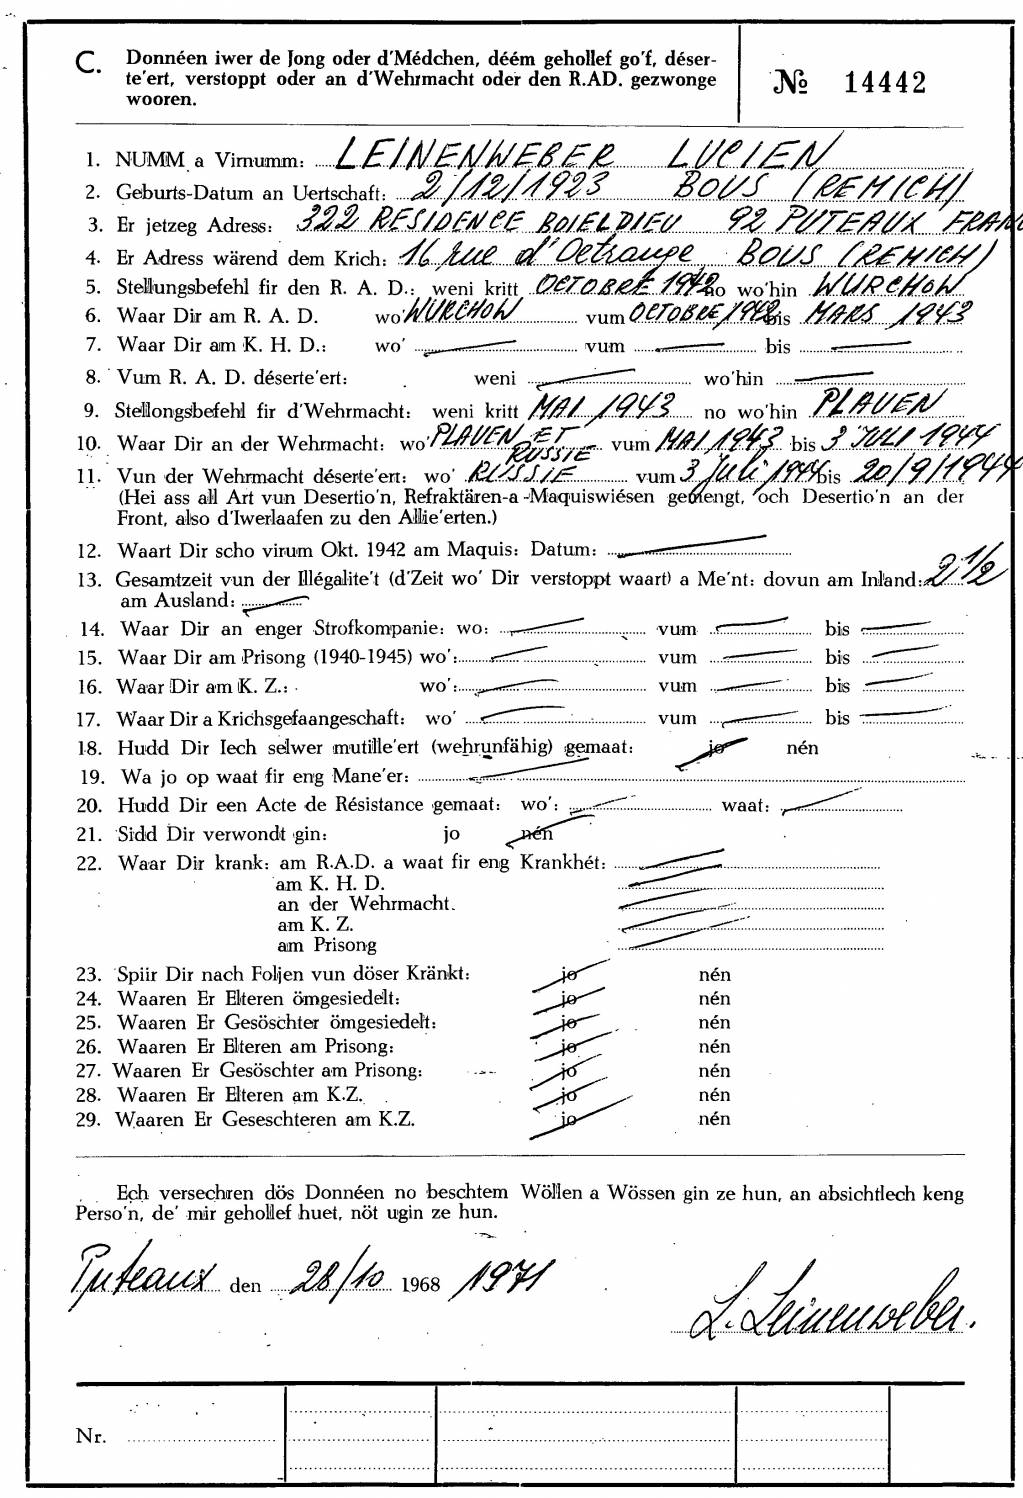 C. Donnéen iwer de Jong oder d'Médchen, déém gehollef go'f, déser-
te'ert, verstoppt oder an d'Wehrmacht oder den R.AD. gezwonge
wooren.
№ 14442
1. NUMM a Virnumm: LEINENWEBER LUCIEN
2. Geburts-Datum an Uertschaft: 2/12/1923 BOUS (REMICH)
3. Er jetzeg Adress: 322 RESIDENCE BOIELDIEU 92 PUTEAUX FRAN
4. Er Adress wärend dem Krich: 16 rue d'Oetrange BOUS (REMICH)
5. Stellungsbefehl fir den R. A. D.: weni kritt OCTOBRE 1942 no wo'hin WURCHOW
6. Waar Dir am R. A. D. wo' WURCHOW vum OCTOBRE 1942 bis MARS 1943
7. Waar Dir am K. H. D.: wo' vum bis
8. Vum R. A. D. déserte'ert: weni wo'hin
9. Stellongsbefehl fir d'Wehrmacht: weni kritt MAI 1943 no wo'hin PLAUEN
10. Waar Dir an der Wehrmacht: wo' PLAUEN ET RUSSIE vum MAI 1943 bis 3 JULI 1944
11. Vun der Wehrmacht déserte'ert: wo' RUSSIE vum 3 Juli 1944 bis 20/9/1944
(Hei ass all Art vun Desertio'n, Refraktären-a-Maquiswiésen gemengt, och Desertio'n an der
Front, also d'Iwerlaafen zu den Allie'erten.)
12. Waart Dir scho virum Okt. 1942 am Maquis: Datum:
13. Gesamtzeit vun der Illégalite't (d'Zeit wo' Dir verstoppt waart) a Me'nt: dovun am Inland: 2 1/2
am Ausland:
14. Waar Dir an enger Strofkompanie: wo: vum bis
15. Waar Dir am Prisong (1940-1945) wo': vum bis
16. Waar Dir am K. Z.: wo': vum bis
17. Waar Dir a Krichsgefaangeschaft: wo' vum bis
18. Hudd Dir Iech selwer mutille'ert (wehrunfähig) gemaat: jo nén
19. Wa jo op waat fir eng Mane'er:
20. Hudd Dir een Acte de Résistance gemaat: wo': waat:
21. Sidd Dir verwondt gin: jo nén
22. Waar Dir krank: am R.A.D. a waat fir eng Krankhét:
am K. H. D.
an der Wehrmacht.
am K. Z.
am Prisong
23. Spiir Dir nach Foljen vun döser Kränkt: jo nén
24. Waaren Er Elteren ömgesiedelt: jo nén
25. Waaren Er Gesöschter ömgesiedelt: jo nén
26. Waaren Er Elteren am Prisong: jo nén
27. Waaren Er Gesöschter am Prisong: jo nén
28. Waaren Er Elteren am K.Z. jo nén
29. Waaren Er Geseschteren am K.Z. jo nén
Ech versechren dös Donnéen no beschtem Wöllen a Wössen gin ze hun, an absichtlech keng
Perso'n, de' mir gehollef huet, nöt ugin ze hun.
Puteaux den 28/10 1968 1971
L. Leinenweber.
Nr.